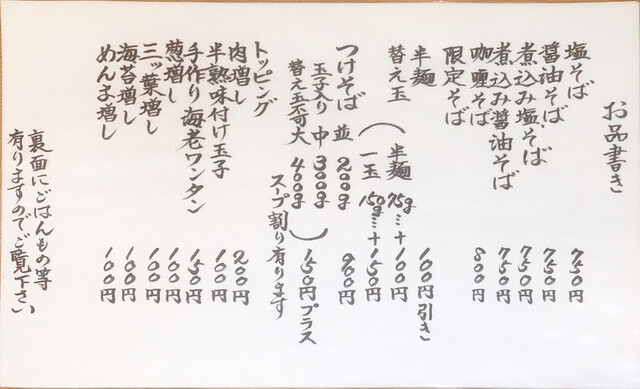 お品書き
塩そば 750円
醤油そば 750円
煮込み塩そば 750円
煮込み醤油そば 750円
咖喱そば 800円
限定そば
半麺 100円引き
替え玉（半麺 75g…＋100円
一玉 150g…＋150円
つけそば 並 200g 900円
玉子入り 中 300g
替え玉不可 大 400g）150円プラス
スープ割り有ります
トッピング
肉増し 200円
半熟味付け玉子 100円
手作り海老ワンタン 150円
葱増し 100円
三ッ葉増し 100円
海苔増し 100円
めんま増し 100円
裏面にごはんもの等
有りますのでご覧下さい